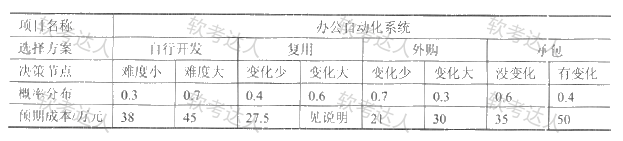 项目名称 办公自动化系统
选择方案 自行开发 复用 外购 承包
决策节点 难度小 难度大 变化少 变化大 变化少 变化大 没变化 有变化
概率分布 0.3 0.7 0.4 0.6 0.7 0.3 0.6 0.4
预期成本/万元 38 45 27.5 见说明 21 30 35 50
软考达人
软考达人
软考达人
软考达人
软考达人
软考达人